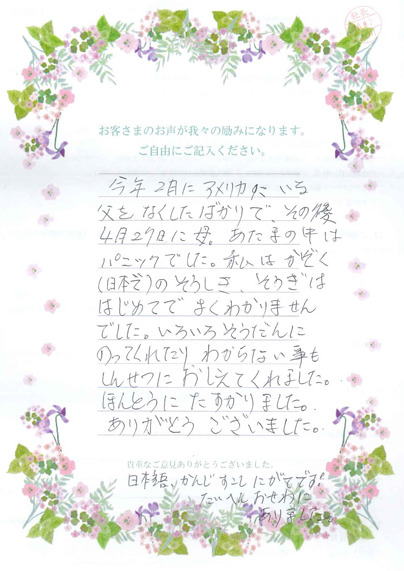 お客さまのお声が我々の励みになります。
ご自由にご記入ください。
今年2月に アメリカに いる
父を なくしたばかりで、その後
4月27日に 母。あたまの中は
パニックでした。私は かぞく
(日本で)の そうしき、そうぎは
はじめてで よくわかりません
でした。いろいろ そうだんに
のってくれたり わからない事も
しんせつに おしえてくれました。
ほんとうに たすかりました。
ありがとう ございました。
貴重なご意見ありがとうございました。
日本語、かんじ すこし にがてです。
たいへん おせわに
なりました。